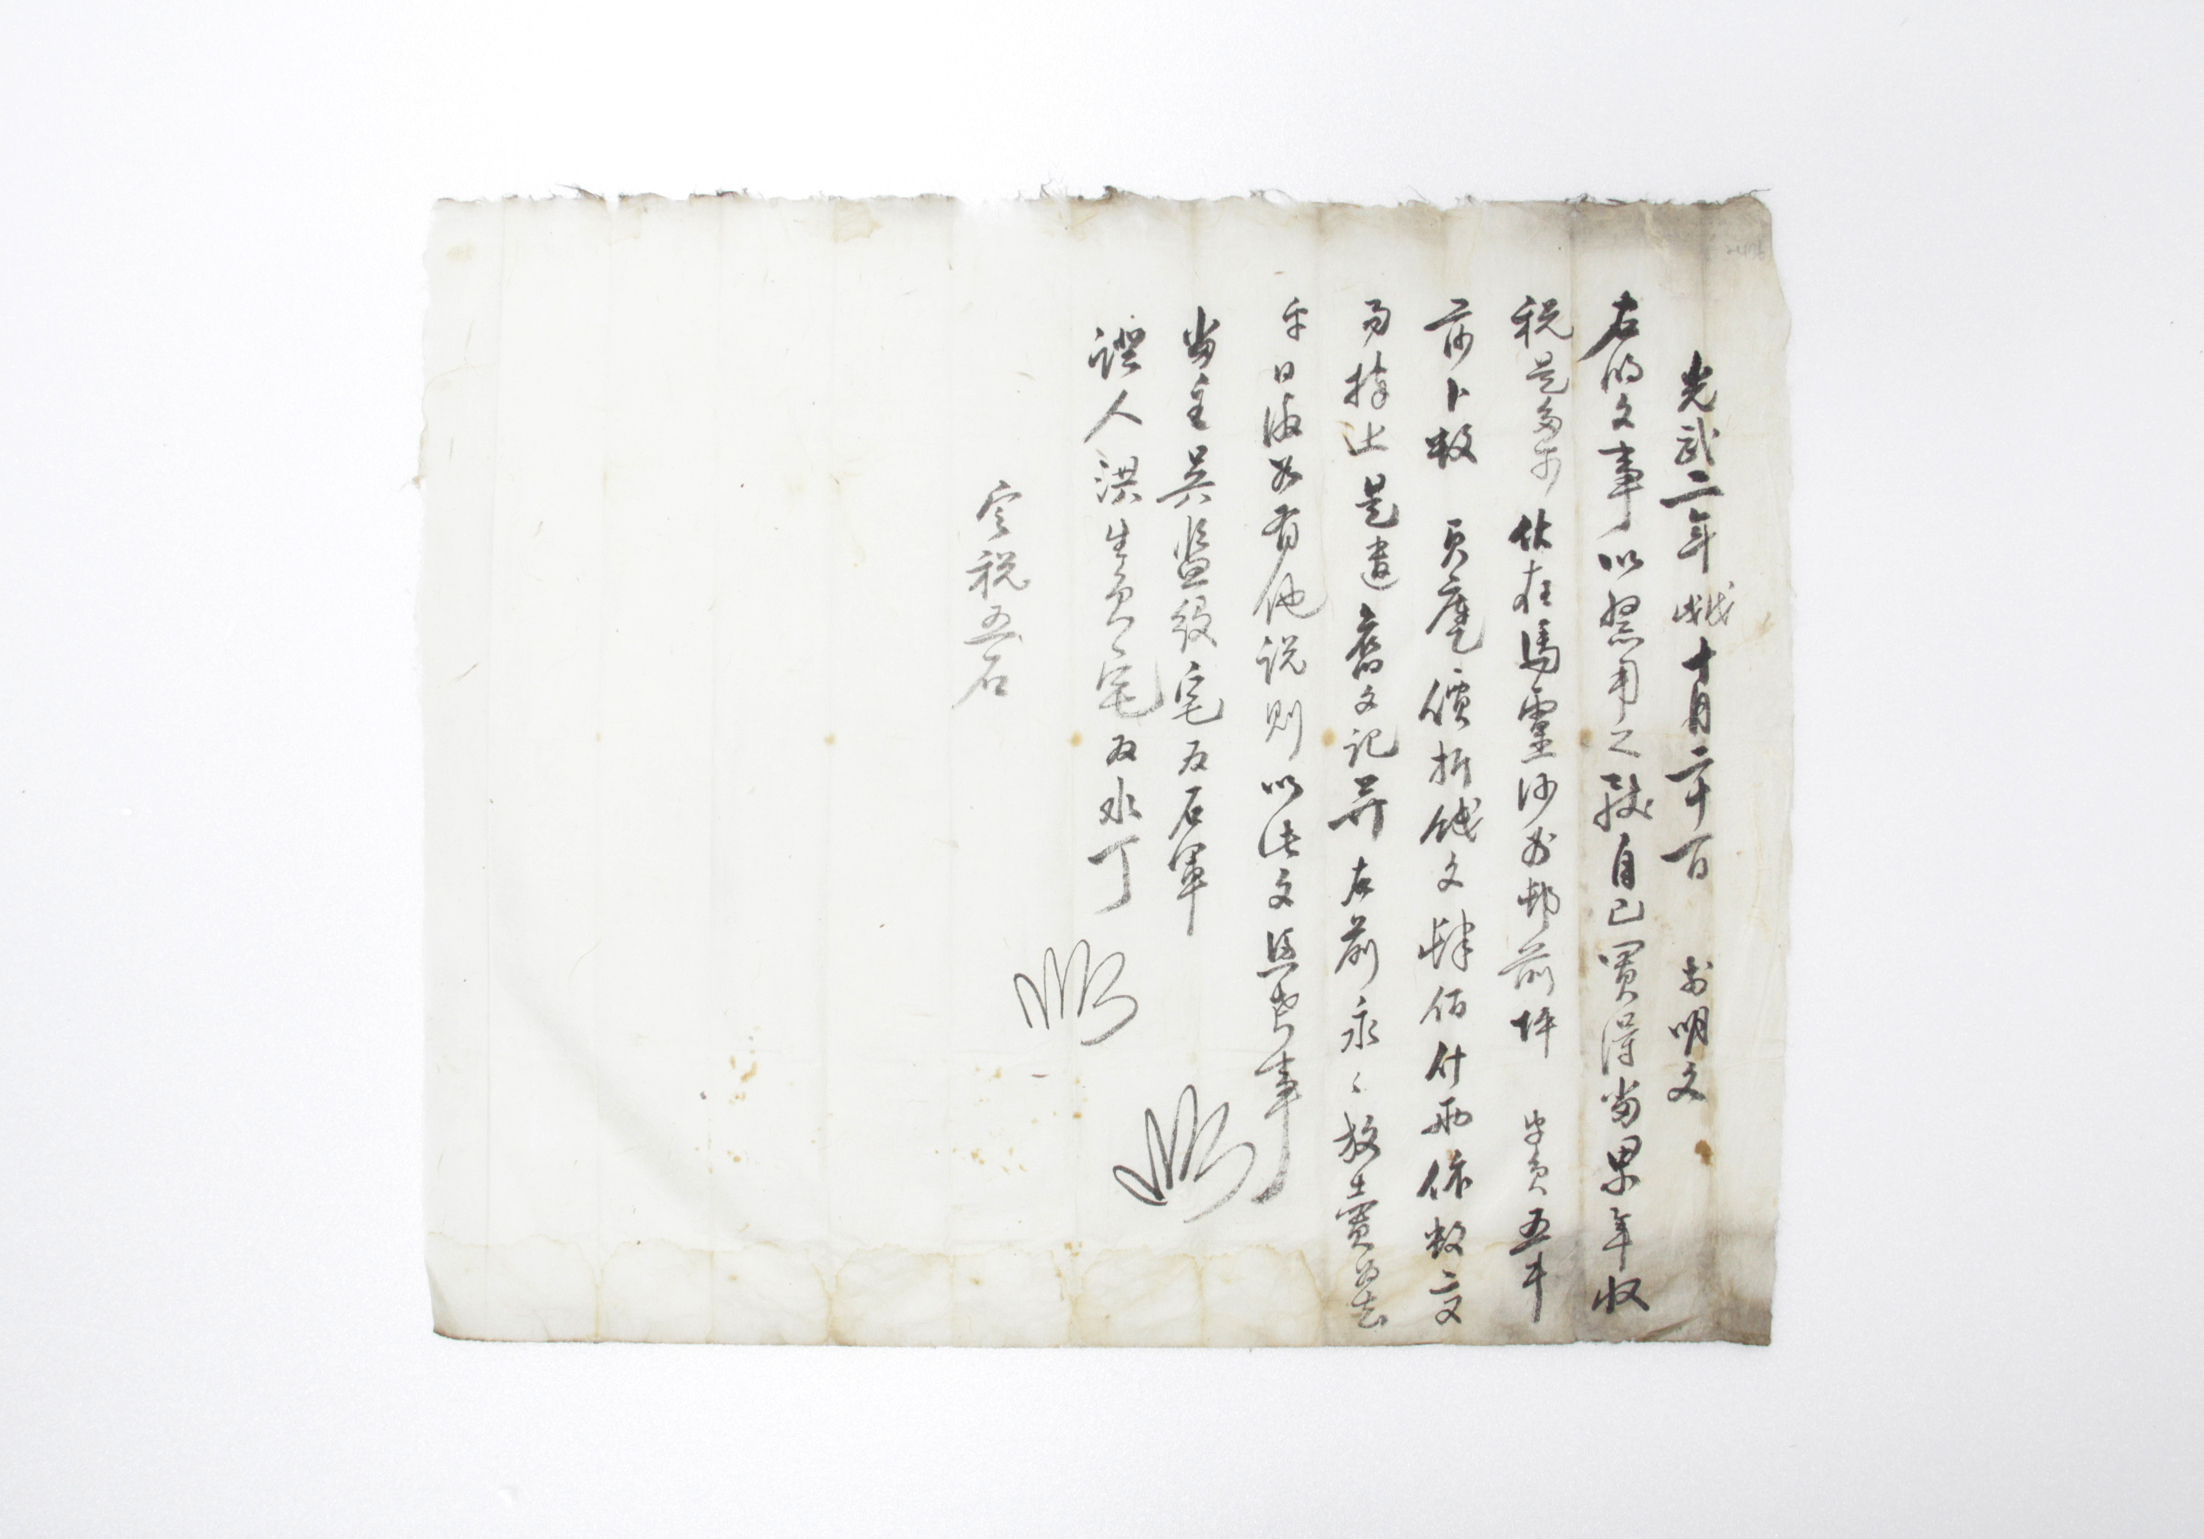 光武二年戊戌十月二十一日 前明文
右明文事以緊用之致自己買得畓累年收
稅是多可伏在馬靈沙 村前坪 字負五斗
落卜數 負㢱價折錢文肆佰什兩依數交
易捧上是遣舊文記幷右前永〻放賣爲去
乎日後若有他說則以此文憑考事
畓主吳監役宅奴石軍
證人洪生員宅奴水丁
定稅五石